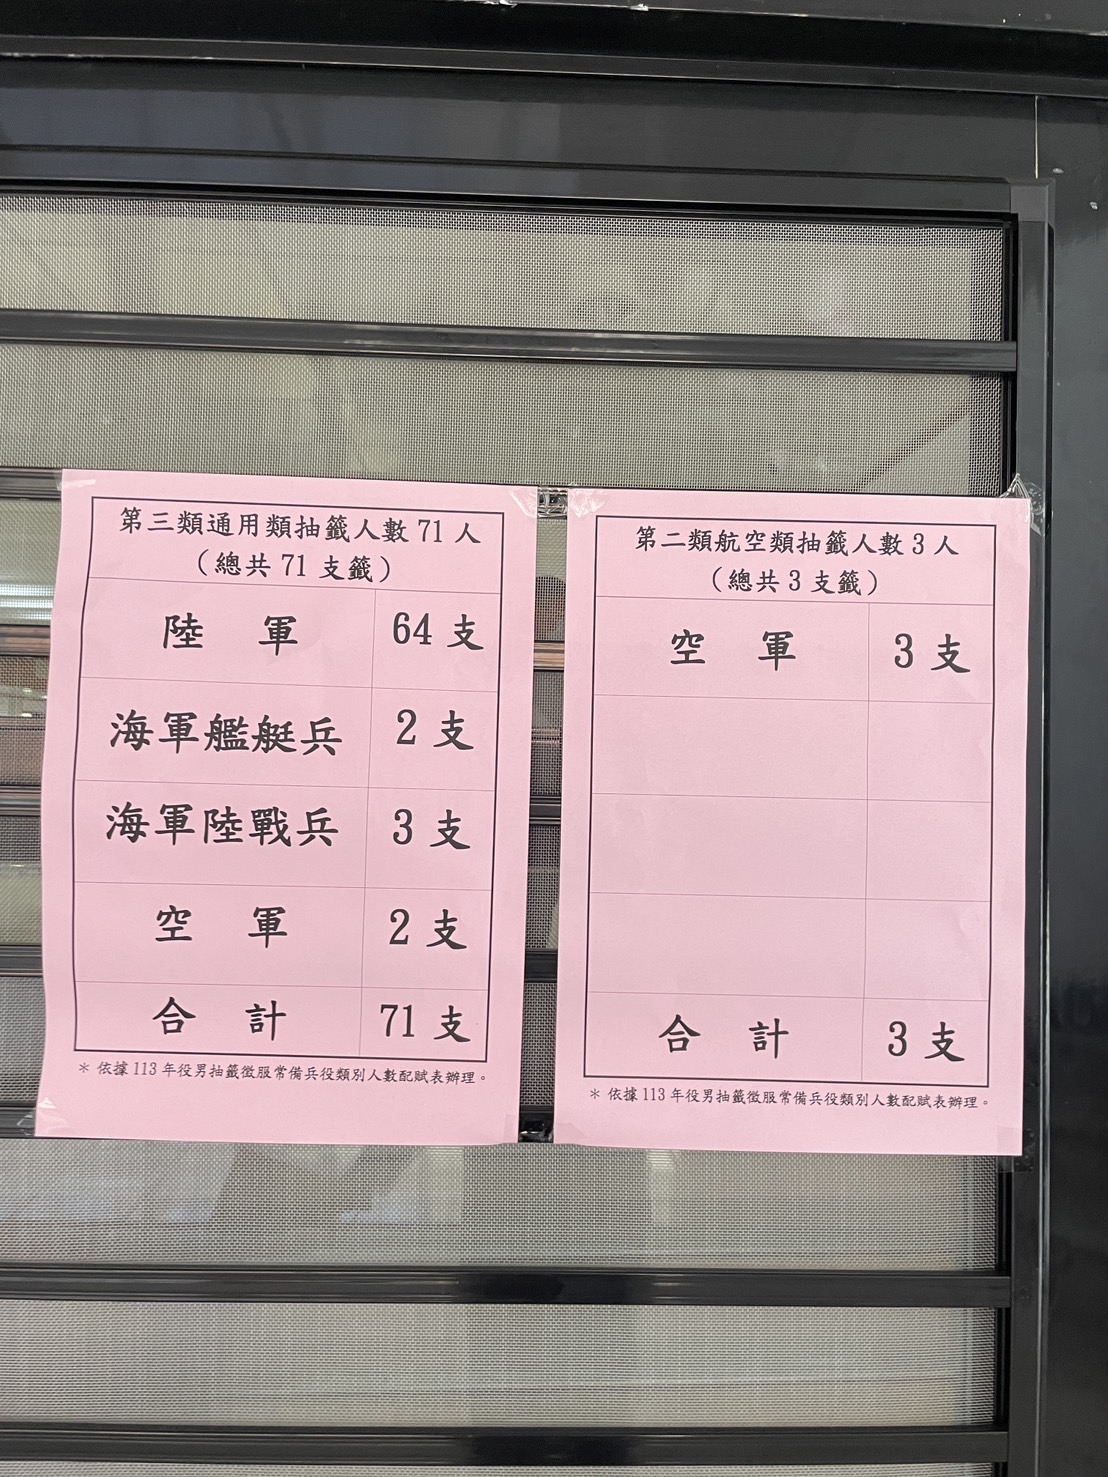 第三類通用類抽籤人數 71 人
（總共 71 支籤）
陸 軍 64 支
海軍艦艇兵 2 支
海軍陸戰兵 3 支
空 軍 2 支
合 計 71 支
＊ 依據 113 年役男抽籤徵服常備兵役類別人數配賦表辦理。
第二類航空類抽籤人數 3 人
（總共 3 支籤）
空 軍 3 支
合 計 3 支
＊ 依據 113 年役男抽籤徵服常備兵役類別人數配賦表辦理。